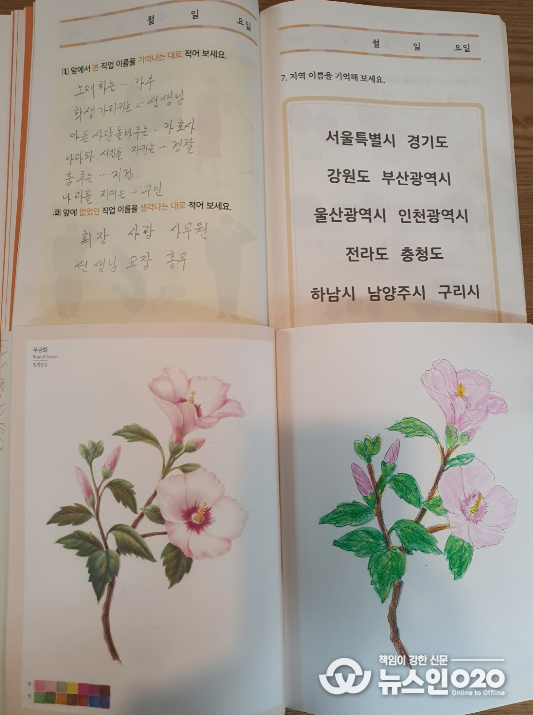 월 일 요일
1 앞에서 본 직업 이름을 기억나는 대로 적어 보세요.
노래하는 --- 가수
학생 가리키는 -- 선생님
아픈 사람 돌봐주는 - 간호사
나라와 시민을 지키는 - 경찰
춤추는 --
나라를 지키는 -- 군인
2 앞에 없었던 직업 이름을 생각나는 대로 적어 보세요.
회장 사장 사무원
선생님 교장 총무
월 일 요일
7. 지역 이름을 기억해 보세요.
서울특별시 경기도
강원도 부산광역시
울산광역시 인천광역시
전라도 충청도
하남시 남양주시 구리시
무궁화
책임이 강한 신문
뉴스인020
Online to Offline